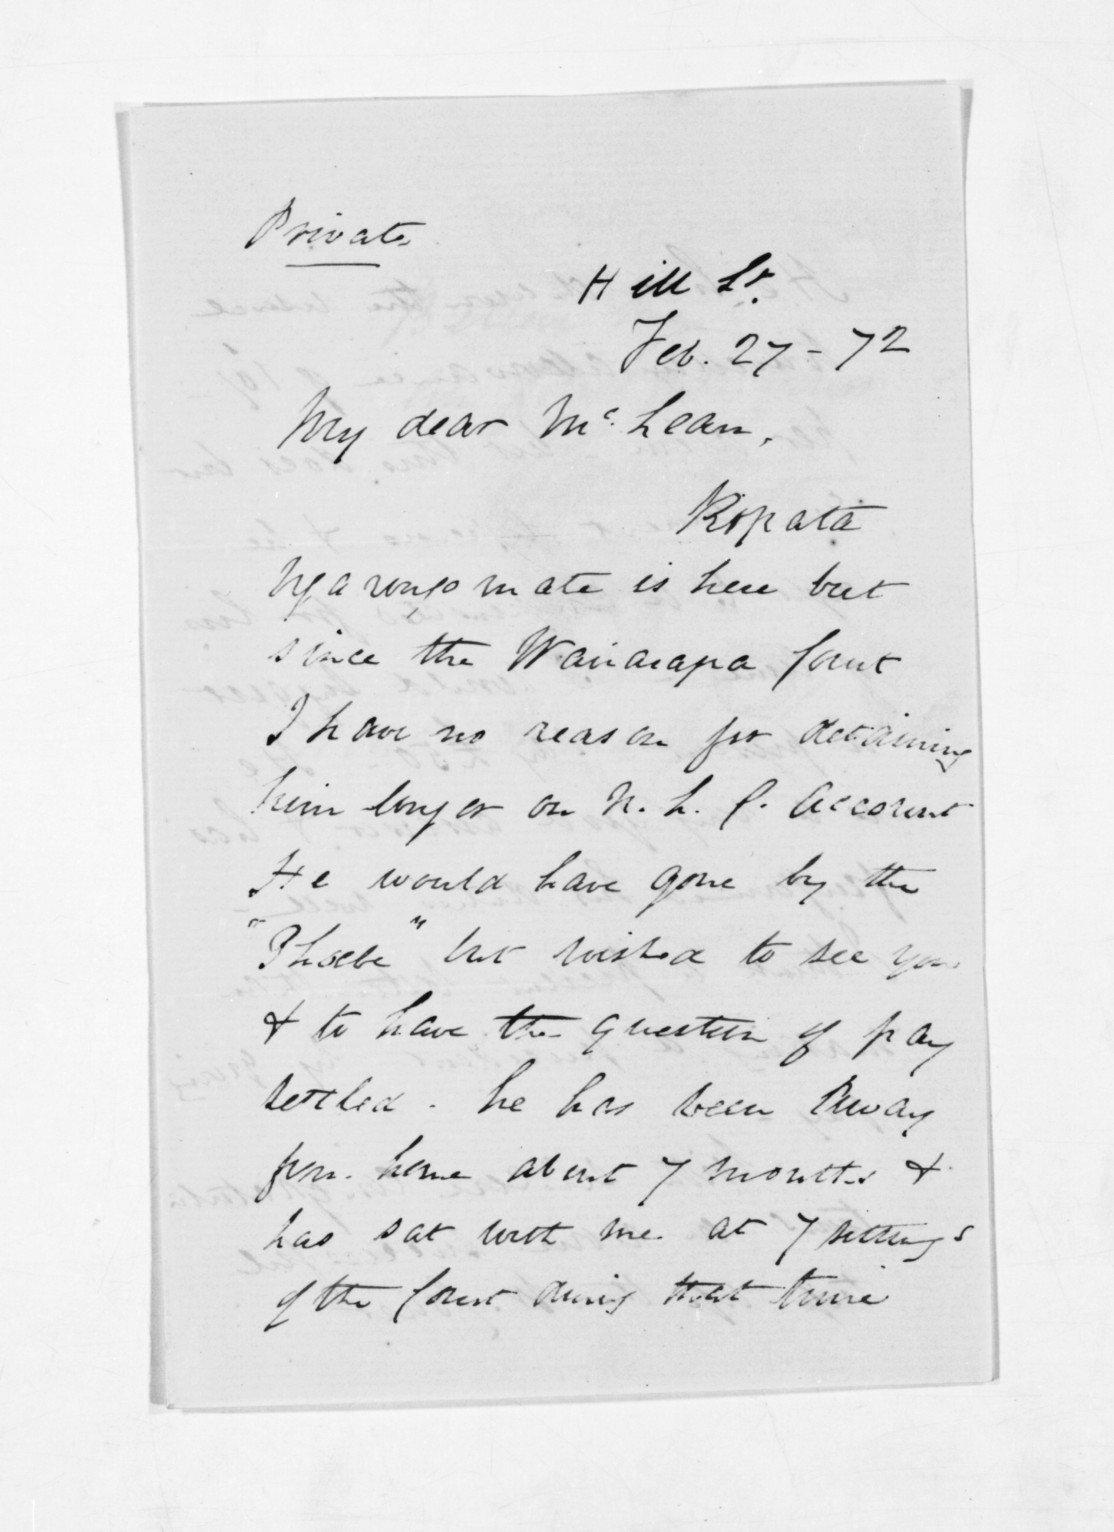 Private
Hill St.
Feb. 27 - 72
My dear McLean,
Ropata
Ngarongomate is here but
since the Wairarapa Court
I have no reason for detaining
him longer on N. L. C. Account
He would have gone by the
"Phoebe" but wished to see you
& to have the question of pay
settled. he has been away
from home about 7 months &
has sat with me at 7 sittings
of the Court during that time